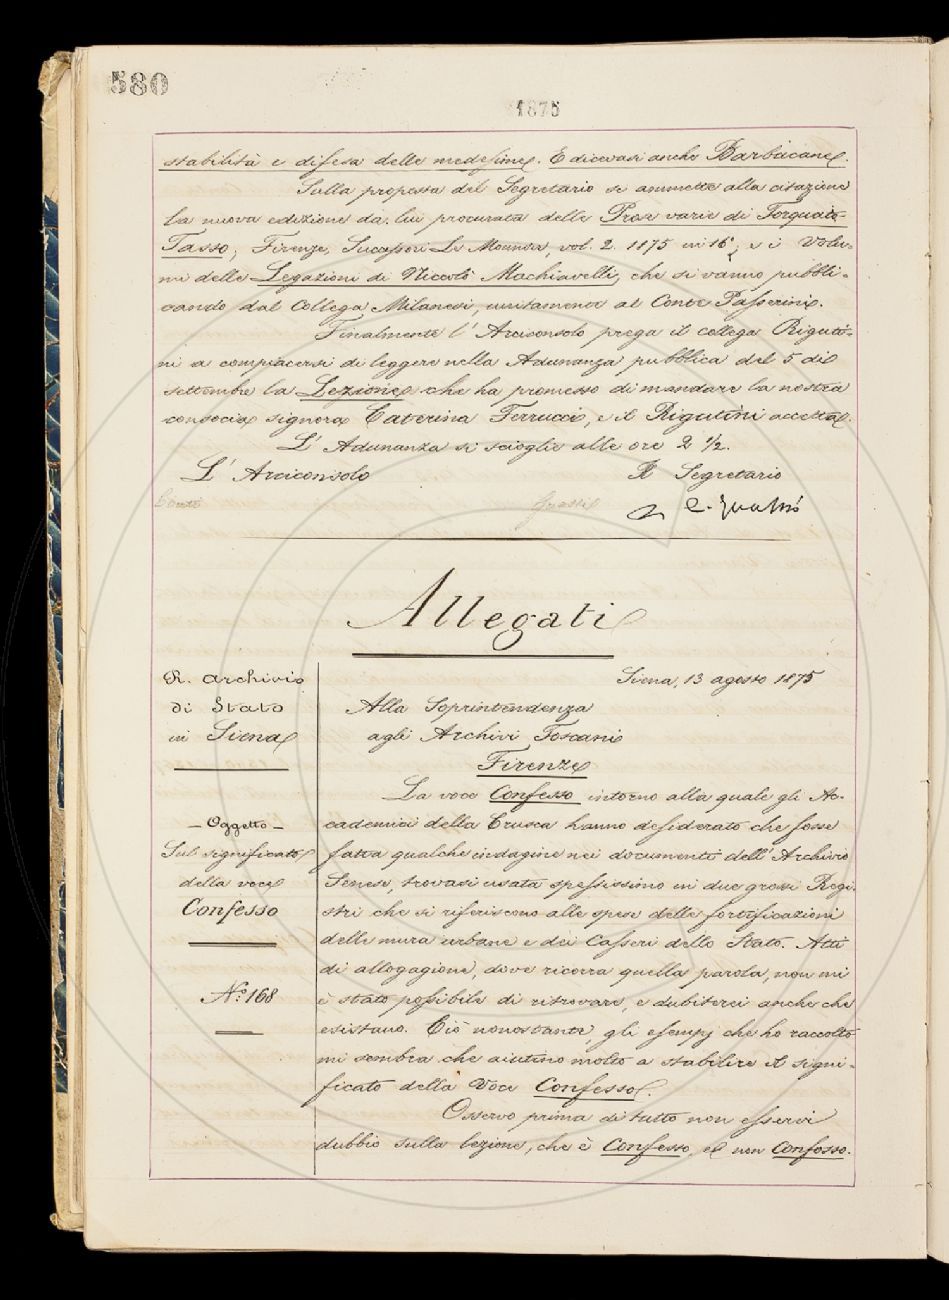 580
1875
stabilità e difesa delle medesime. E dicevasi anche Barbacane.
Sulla proposta del Segretario si ammette alla citazione
la nuova edizione da lui procurata delle Prose varie di Torquato
Tasso; Firenze, Successori Le Monnier, vol. 2. 1875 in 16°; e i Volu-
mi delle Legazioni di Niccolò Machiavelli, che si vanno pubbli-
cando dal Collega Milanesi, unitamente al Conte Passerini.
Finalmente l'Arciconsolo prega il collega Riguti-
ni a compiacersi di leggere nella Adunanza pubblica del 5 di
settembre la Lezione che ha promesso di mandare la nostra
consocia signora Caterina Ferrucci, e il Rigutini accetta.
L'Adunanza si scioglie alle ore 2 ½.
L'Arciconsolo
Il Segretario
Conti
Guasti
C. Guasti
Allegati
R. Archivio
di Stato
in Siena
Oggetto
Sul significato
della voce
Confesso
N.° 168
Siena, 13 agosto 1875
Alla Soprintendenza
agli Archivi Toscani
Firenze
La voce Confesso intorno alla quale gli Ac-
cademici della Crusca hanno desiderato che fosse
fatta qualche indagine nei documenti dell'Archivio
Senese, trovasi usata spessissimo in due grossi Regi-
stri che si riferiscono alle spese delle fortificazioni
delle mura urbane e dei Casseri dello Stato. Atti
di allogagione, dove ricorra quella parola, non mi
è stato possibile di ritrovare, e dubiterei anche che
esistano. Ciò nonostante, gli esempj che ho raccolto
mi sembra che aiutino molto a stabilire il signi-
ficato della Voce Confesso.
Osservo prima di tutto non esservi
dubbio sulla lezione, che è Confesso, e non Confosso.